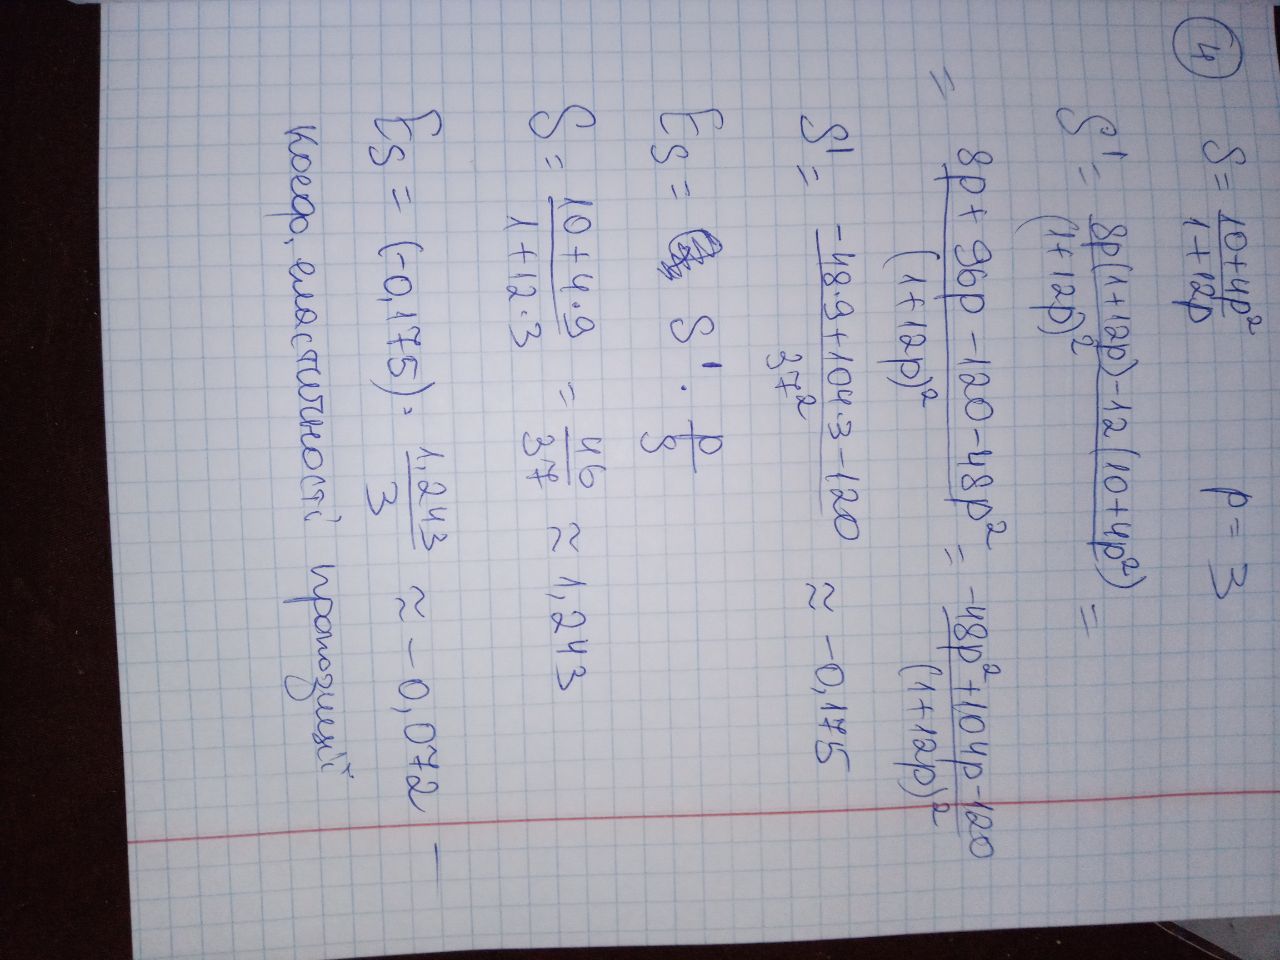 4 S = (10+4p²)/(1+12p) p = 3
S' = (8p(1+12p)-12(10+4p²))/(1+12p)² =
= (8p+96p-120-48p²)/(1+12p)² = (-48p²+104p-120)/(1+12p)²
S' = (-48·9+104·3-120)/37² ≈ -0,175
Es = S' · p/S
S = (10+4·9)/(1+12·3) = 46/37 ≈ 1,243
Es = (-0,175) · 1,243/3 ≈ -0,072 –
коеф, еластичності пропозиції